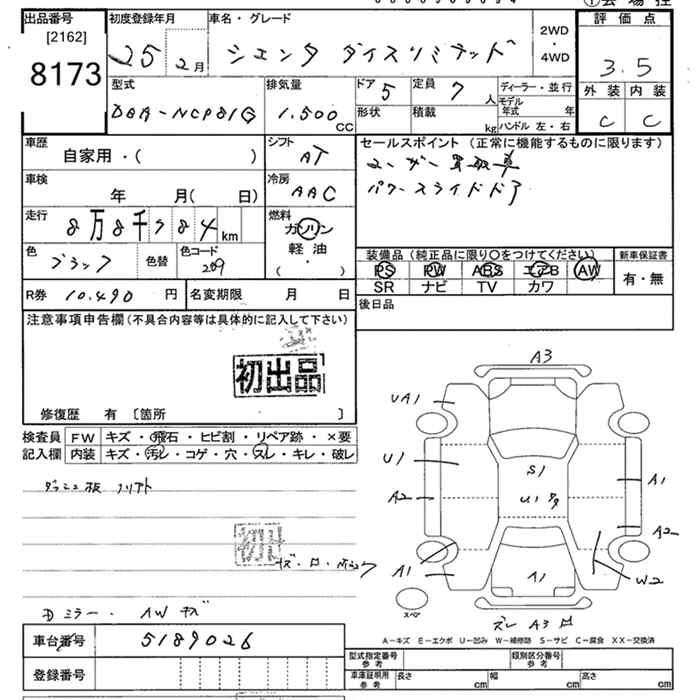 出品番号
[2162]
8173
初度登録年月
25 2月
車名・グレード
シエンタ ダイスリミテッド
2WD・4WD
評価点
3.5
外装 内装
C C
型式
DBA-NCP81G
排気量
1.500 CC
ドア 5
形状
定員 7 人
積載 kg
ディーラー・並行
モデル年式 年
ハンドル 左・右
車歴
自家用・( )
シフト
AT
セールスポイント (正常に機能するものに限ります)
ユーザー買取車
パワースライドドア
車検
年 月( 日)
冷房
AAC
走行
8万8千784km
燃料
ガソリン
軽油
( ・ )
色
ブラック
色替
色コード
209
装備品 (純正品に限り○をつけてください)
PS PW ABS エアB AW
SR ナビ TV カワ
新車保証書
有・無
R券 10.490 円
名変期限 月 日
後日品
注意事項申告欄(不具合内容等は具体的に記入して下さい)
初出品
修復歴 有 〔箇所 〕
検査員記入欄
FW キズ・飛石・ヒビ割・リペア跡・×要
内装 キズ・汚レ・コゲ・穴・スレ・キレ・破レ
A3
UA1
U1
S1
A1
A2
U1
A2
A1
A1
W2
スペア
A3
A-キズ E-エクボ U-凹み W-補修跡 S-サビ C-腐食 XX-交換済
Dミラー・AWキズ
車台番号 5189026
登録番号
型式指定番号 参考
類別区分番号 参考
車庫証明用 参考
長さ cm
幅 cm
高さ cm